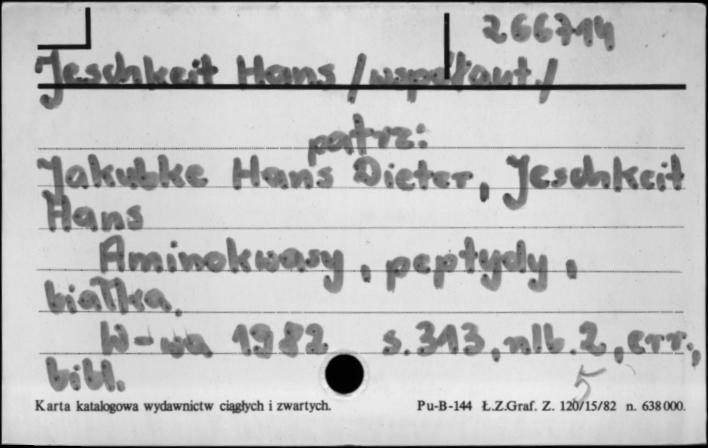 266714
Jeschkeit Hans /współaut./
patrz:
Jakubke Hans Dieter, Jeschkeit
Hans
Aminokwasy, peptydy,
białka.
W-wa 1982 s.313, nlb.2, err.,
bibl.
5
Karta katalogowa wydawnictw ciągłych i zwartych. Pu-B-144 Ł.Z.Graf. Z. 120/15/82 n. 638000.